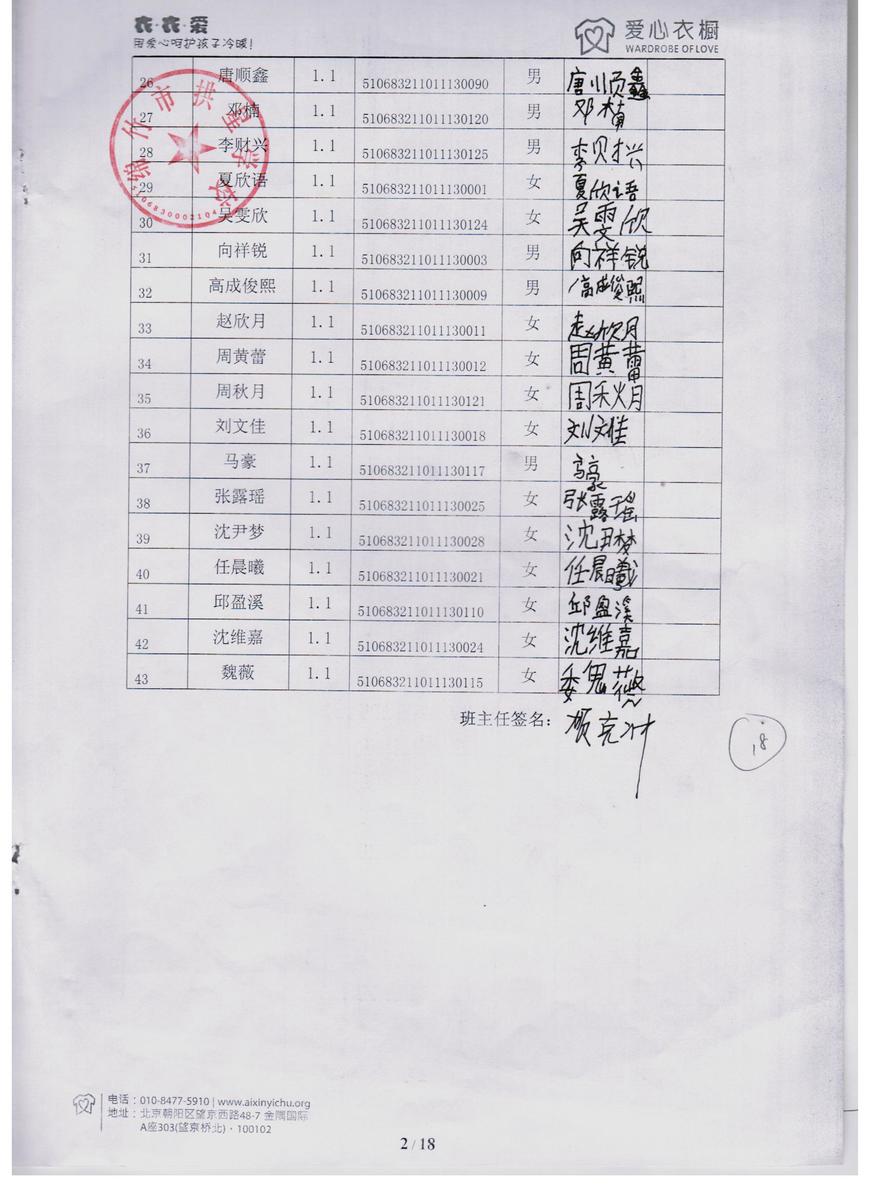 衣·衣·爱
用爱心呵护孩子冷暖!
爱心衣橱
WARDROBE OF LOVE
26 唐顺鑫 1.1 510683211011130090 男 唐顺鑫
27 邓楠 1.1 510683211011130120 男 邓楠
28 李财兴 1.1 510683211011130125 男 李财兴
29 夏欣语 1.1 510683211011130001 女 夏欣语
30 吴雯欣 1.1 510683211011130124 女 吴雯欣
31 向祥锐 1.1 510683211011130003 男 向祥锐
32 高成俊熙 1.1 510683211011130009 男 高成俊熙
33 赵欣月 1.1 510683211011130011 女 赵欣月
34 周黄蕾 1.1 510683211011130012 女 周黄蕾
35 周秋月 1.1 510683211011130121 女 周秋月
36 刘文佳 1.1 510683211011130018 女 刘文佳
37 马豪 1.1 510683211011130117 男 马豪
38 张露瑶 1.1 510683211011130025 女 张露瑶
39 沈尹梦 1.1 510683211011130028 女 沈尹梦
40 任晨曦 1.1 510683211011130021 女 任晨曦
41 邱盈溪 1.1 510683211011130110 女 邱盈溪
42 沈维嘉 1.1 510683211011130024 女 沈维嘉
43 魏薇 1.1 510683211011130115 女 魏薇
绵竹市拱星学校
班主任签名:
电话:010-8477-5910 | www.aixinyichu.org
地址:北京朝阳区望京西路48-7 金隅国际
A座303(望京桥北)·100102
2 / 18